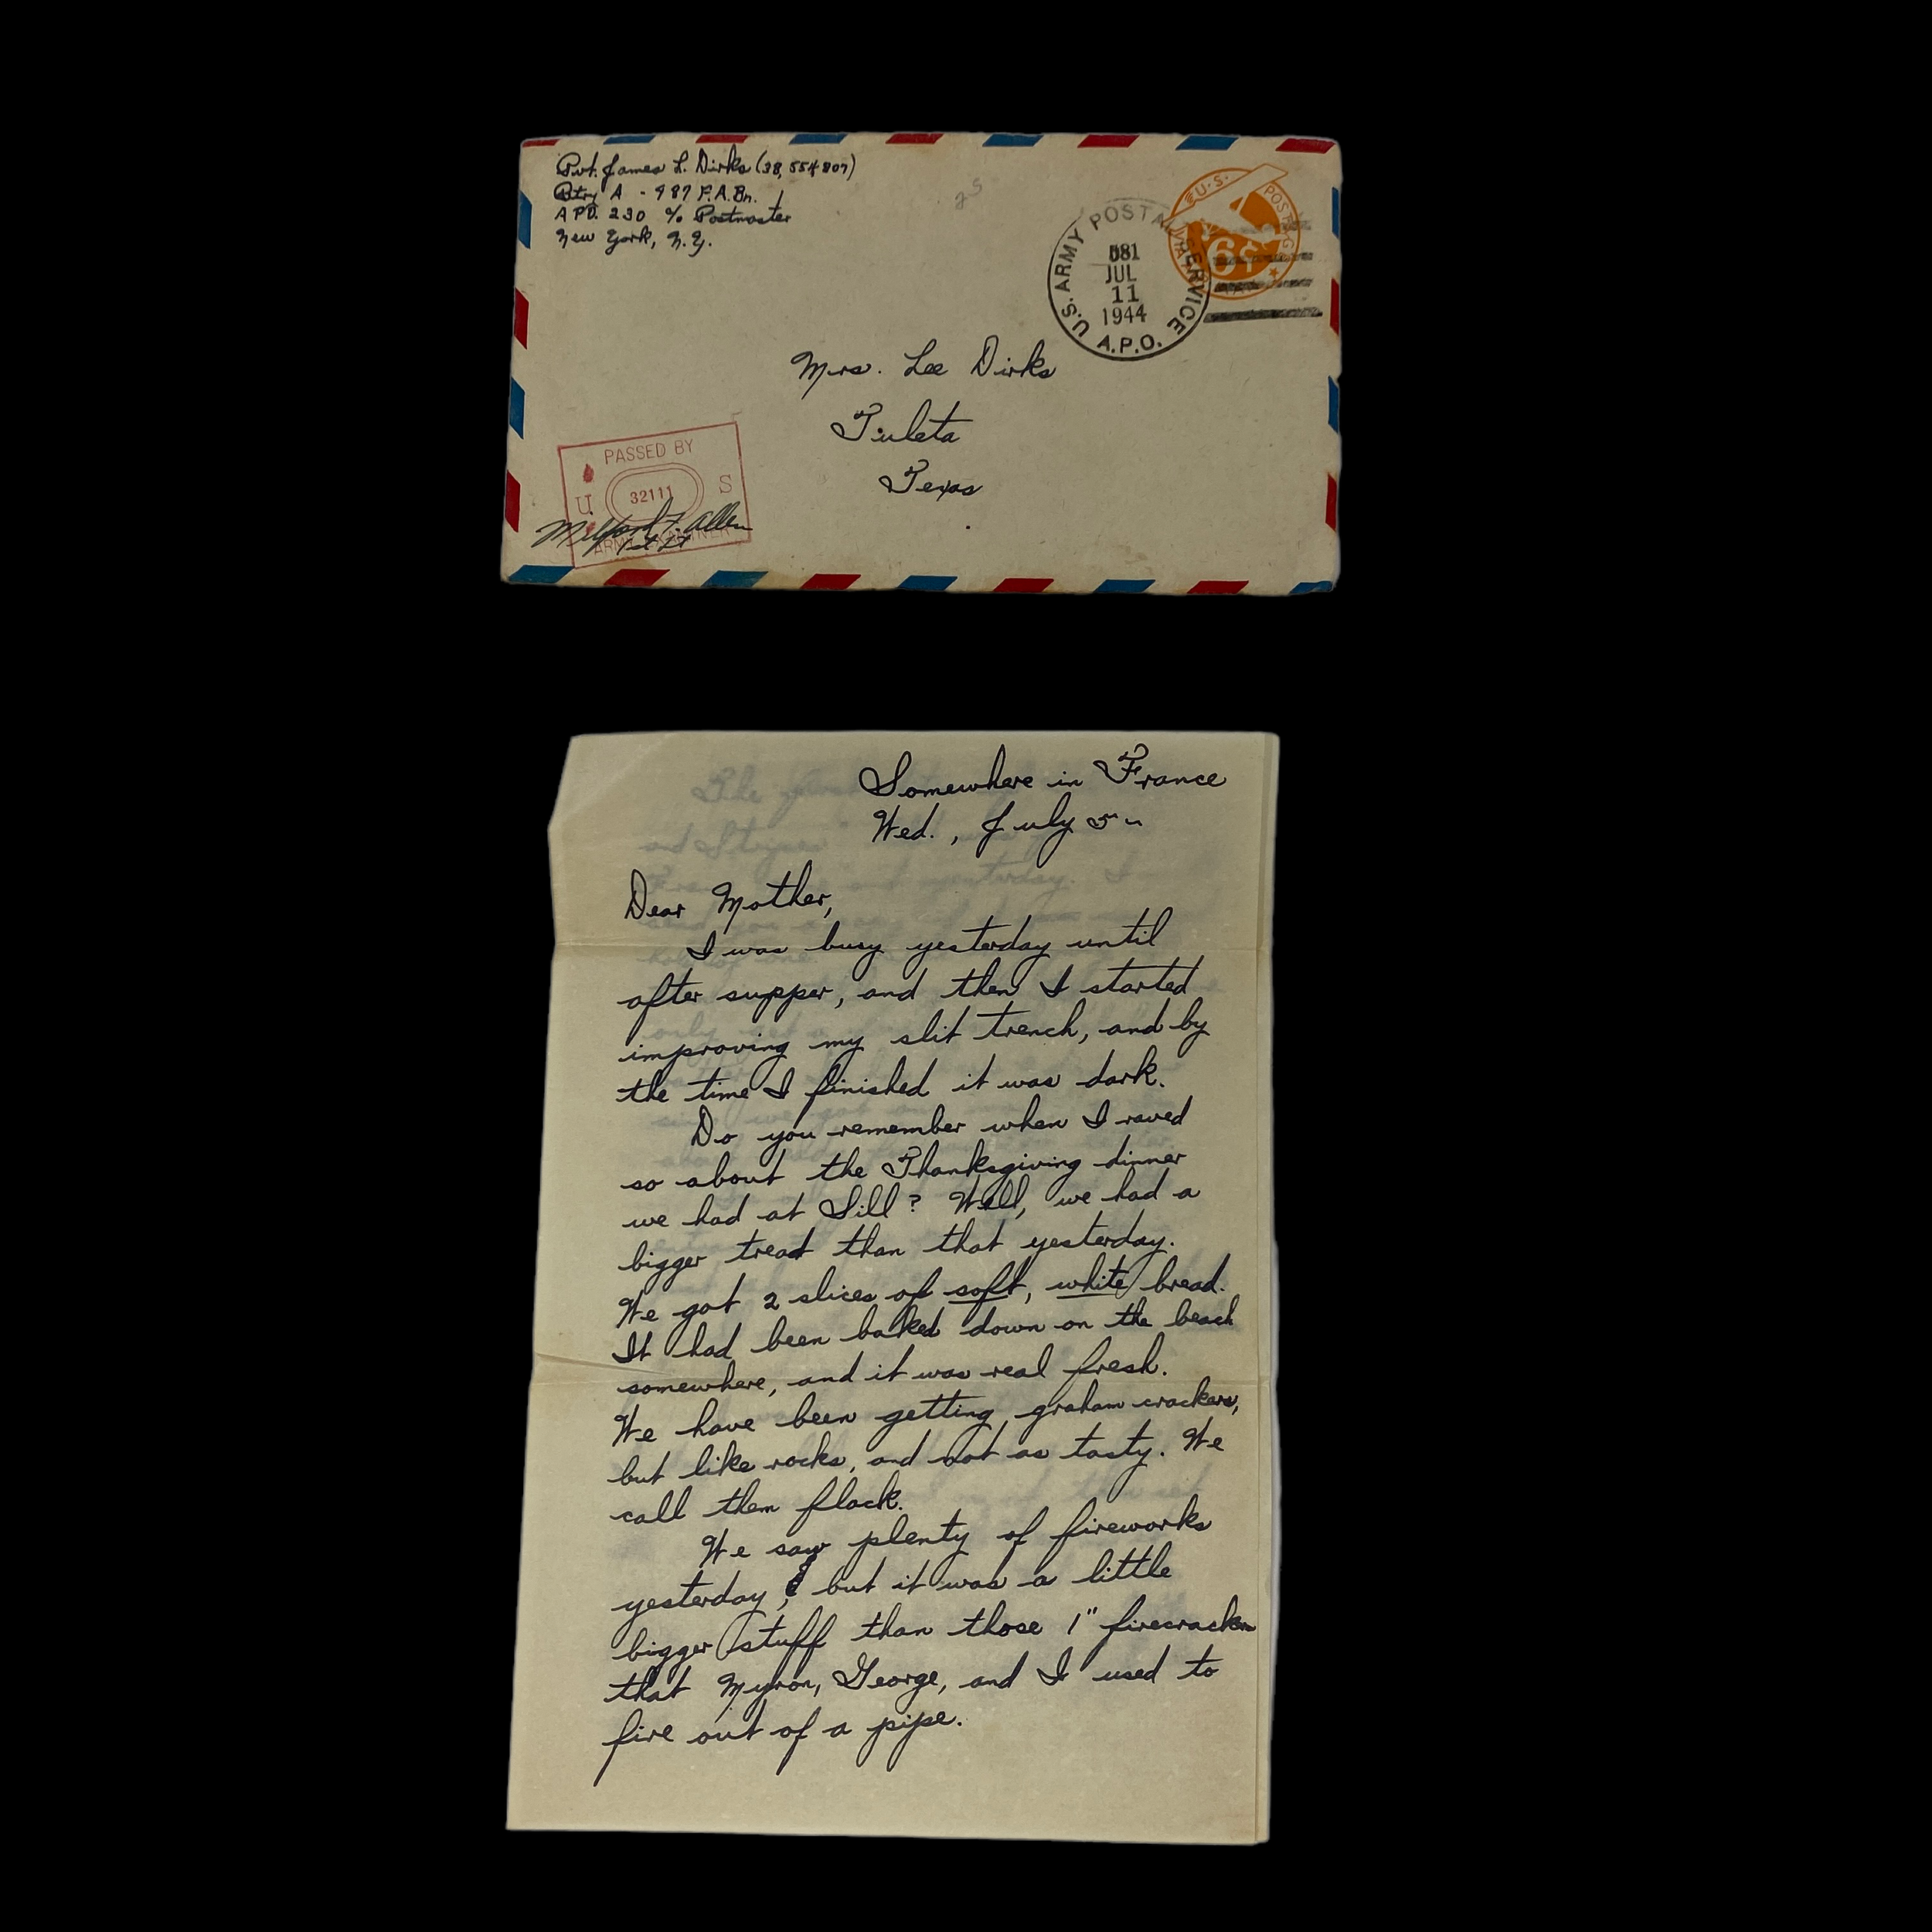 Pvt. James L. Dirks (38,554807)
Btry A - 987 F.A.Bn.
APO. 230 % Postmaster
New York, N.Y.
U.S. POSTAGE
VIA AIR MAIL
6¢
U.S. ARMY POSTAL SERVICE
JUL
11
1944
A.P.O.
Mrs. Lee Dirks
Tuleta
Texas
PASSED BY
U. S
32111
ARMY EXAMINER
Milford F. Allen
1st Lt
Somewhere in France
Wed., July 5
Dear Mother,
I was busy yesterday until
after supper, and then I started
improving my slit trench, and by
the time I finished it was dark.
Do you remember when I raved
so about the Thanksgiving dinner
we had at Sill? Well, we had a
bigger treat than that yesterday.
We got 2 slices of soft, white bread.
It had been baked down on the beach
somewhere, and it was real fresh.
We have been getting graham crackers,
but like rocks, and not as tasty. We
call them flack.
We saw plenty of fireworks
yesterday, but it was a little
bigger stuff than those 1" firecrackers
that Myron, George, and I used to
fire out of a pipe.